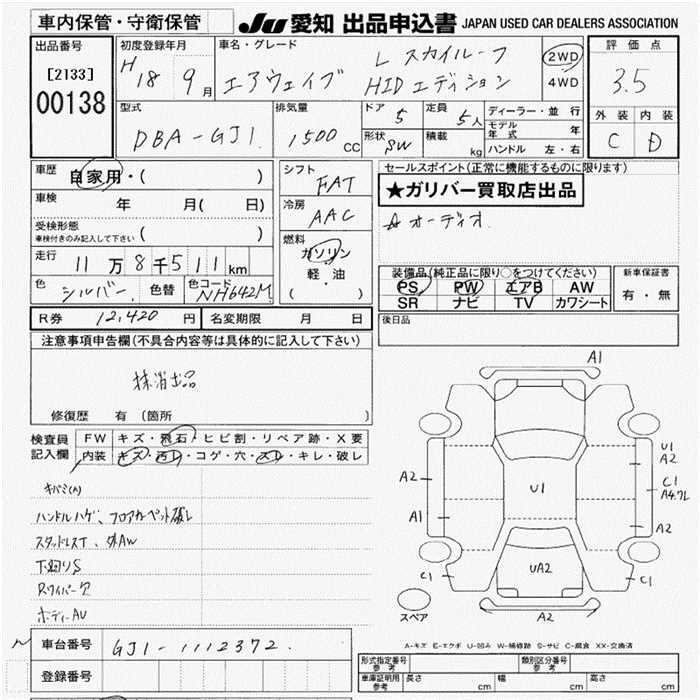 車内保管・守衛保管
JU 愛知 出品申込書 JAPAN USED CAR DEALERS ASSOCIATION
出品番号
[2133]
00138
初度登録年月
H18 9月
車名・グレード
L スカイルーフ
エアウェイブ HIDエディション
2WD
4WD
評価点
3.5
外装 内装
C D
型式
DBA-GJ1
排気量
1500 CC
ドア 5
定員 5人
形状 SW
積載 kg
ディーラー・並行
モデル年式 年
ハンドル 左・右
車歴
自家用・( )
車検
年 月( 日)
受検形態
車検付きのみ記入して下さい ( )
走行
11万8千511km
色
シルバー
色替
色コード
NH642M
シフト
FAT
冷房
AAC
燃料
ガソリン
軽・油
( )
セールスポイント(正常に機能するものに限ります)
★ガリバー買取店出品
☆オーディオ
装備品(純正品に限り○をつけてください)
PS PW エアB AW
SR ナビ TV カワシート
新車保証書
有・無
R券 12,420円
名変期限 月 日
後日品
注意事項申告欄(不具合内容等は具体的に記入して下さい)
抹消出品
修復歴 有 (箇所 )
検査員記入欄
FW キズ・飛石・ヒビ割・リペア跡・X要
内装 キズ・汚レ・コゲ・穴・スレ・キレ・破レ
ハンドルハゲ、フロアカーペット破レ
スタッドレスT、外AW
下廻りS
Rワイパー欠
ボディーAU
A1
U1
A2
A2
U1
C1
A4.7L
A1
A2
C1
UA2
C1
スペア
A2
A-キズ E-エクボ U-凹み W-補修跡 S-サビ C-腐食 XX-交換済
車台番号
GJ1-1112372
登録番号
形式指定番号 参考
類別区分番号 参考
車庫証明用 参考
長さ cm
幅 cm
高さ cm